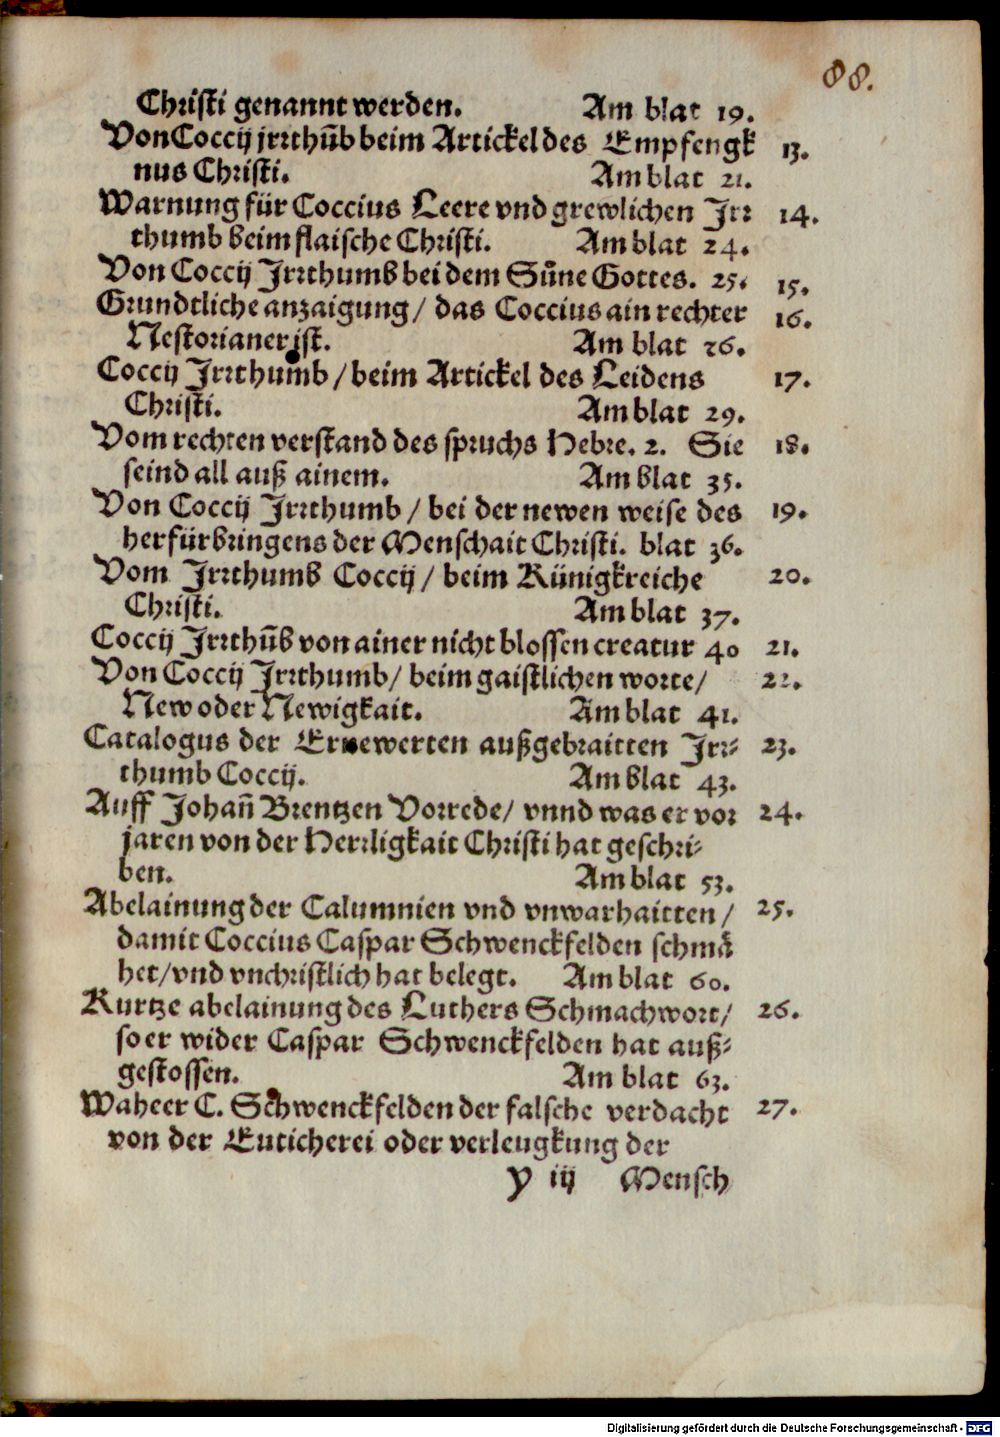 88.
Christi genannt werden. Am blat 19.
Von Coccij jrrthūb beim Artickel des Empfengk 13.
nus Christi. Am blat 21.
Warnung für Coccius Leere vnd grewlichen Jrr 14.
thumb beim flaische Christi. Am blat 24.
Von Coccij Jrrthumb bei dem Sūne Gottes. 25. 15.
Grundtliche anzaigung / das Coccius ain rechter 16.
Nestorianer ist. Am blat 26.
Coccij Jrrthumb / beim Artickel des Leidens 17.
Christi. Am blat 29.
Vom rechten verstand des spruchs Hebre. 2. Sie 18.
seind all auß ainem. Am blat 35.
Von Coccij Jrrthumb / bei der newen weise des 19.
herfürbringens der Menschait Christi. blat 36.
Vom Jrrthumb Coccij / beim Künigkreiche 20.
Christi. Am blat 37.
Coccij Jrrthūb von ainer nicht blossen creatur 40 21.
Von Coccij Jrrthumb / beim gaistlichen worte / 22.
New oder Newigkait. Am blat 41.
Catalogus der Ernewerten außgebraitten Jrr⸗ 23.
thumb Coccij. Am blat 43.
Auff Johañ Brentzen Vorrede / vnnd was er vor 24.
jaren von der Herrligkait Christi hat geschri⸗
ben. Am blat 53.
Abelainung der Calumnien vnd vnwarhaitten / 25.
damit Coccius Caspar Schwenckfelden schmä
het / vnd vnchristlich hat belegt. Am blat 60.
Kurtze abelainung des Luthers Schmachwort / 26.
so er wider Caspar Schwenckfelden hat auß⸗
gestossen. Am blat 63.
Waheer C. Schwenckfelden der falsche verdacht 27.
von der Euticherei oder verleugkung der
y iij Mensch
Digitalisierung gefördert durch die Deutsche Forschungsgemeinschaft - DFG